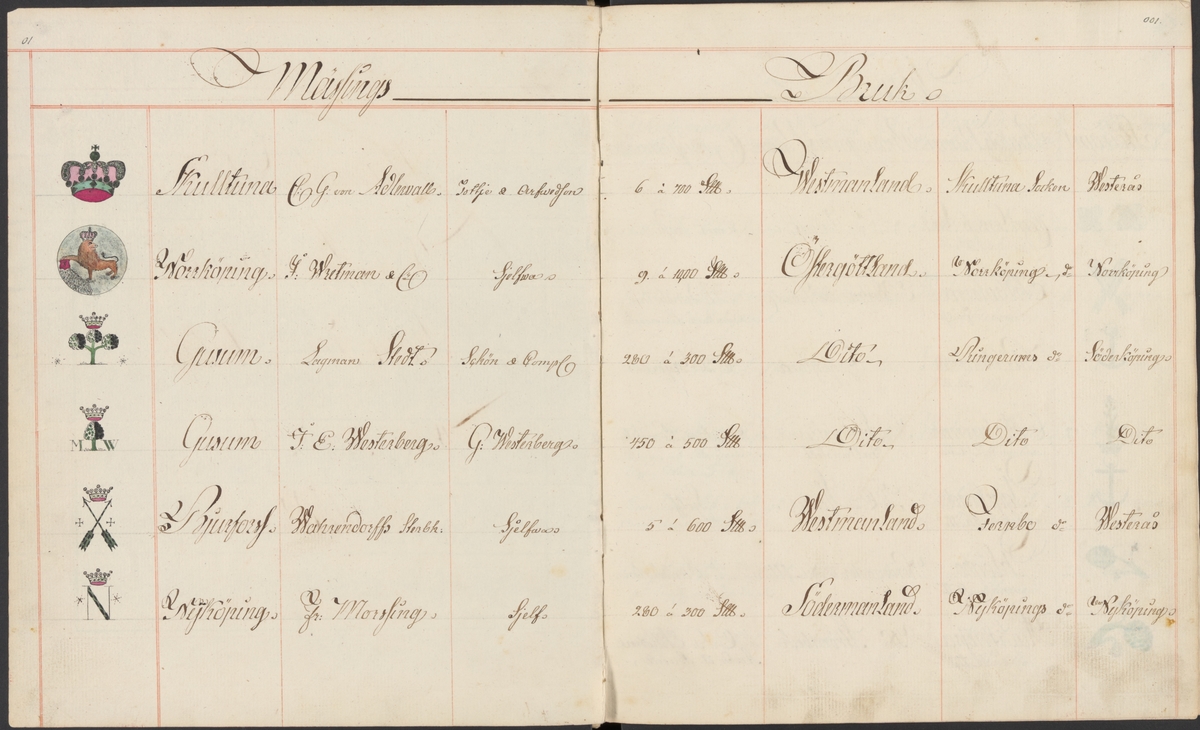 01
001.
Mässings Bruk
Skulltuna C G von Adlerwall. & Arfwedson 6 à 700 Sktt. Westmanland. Skulltuna Socken Westerås
Norrköping. J. Wretman & C: Sjelfwa 9 à 1400 Sktt. Östergöttland. Norrköping do Norrköping
Gusum. Lagman Stedt. Schön & Comp 280 à 300 Sktt. Dito Ringerums do Söderköping
M W Gusum J. E. Westerberg. G. Westerberg. 450 à 500 Sktt. Dito Dito Dito
Bjurfors. Wahrendorffs Sterbh. Sjelfwa 5 à 600 Sktt. Westmanland. do Westerås
N Nyköping. Fr: Morsing. Sjelf 280 à 300 Sktt. Södermanland. Nyköpings do Nyköping